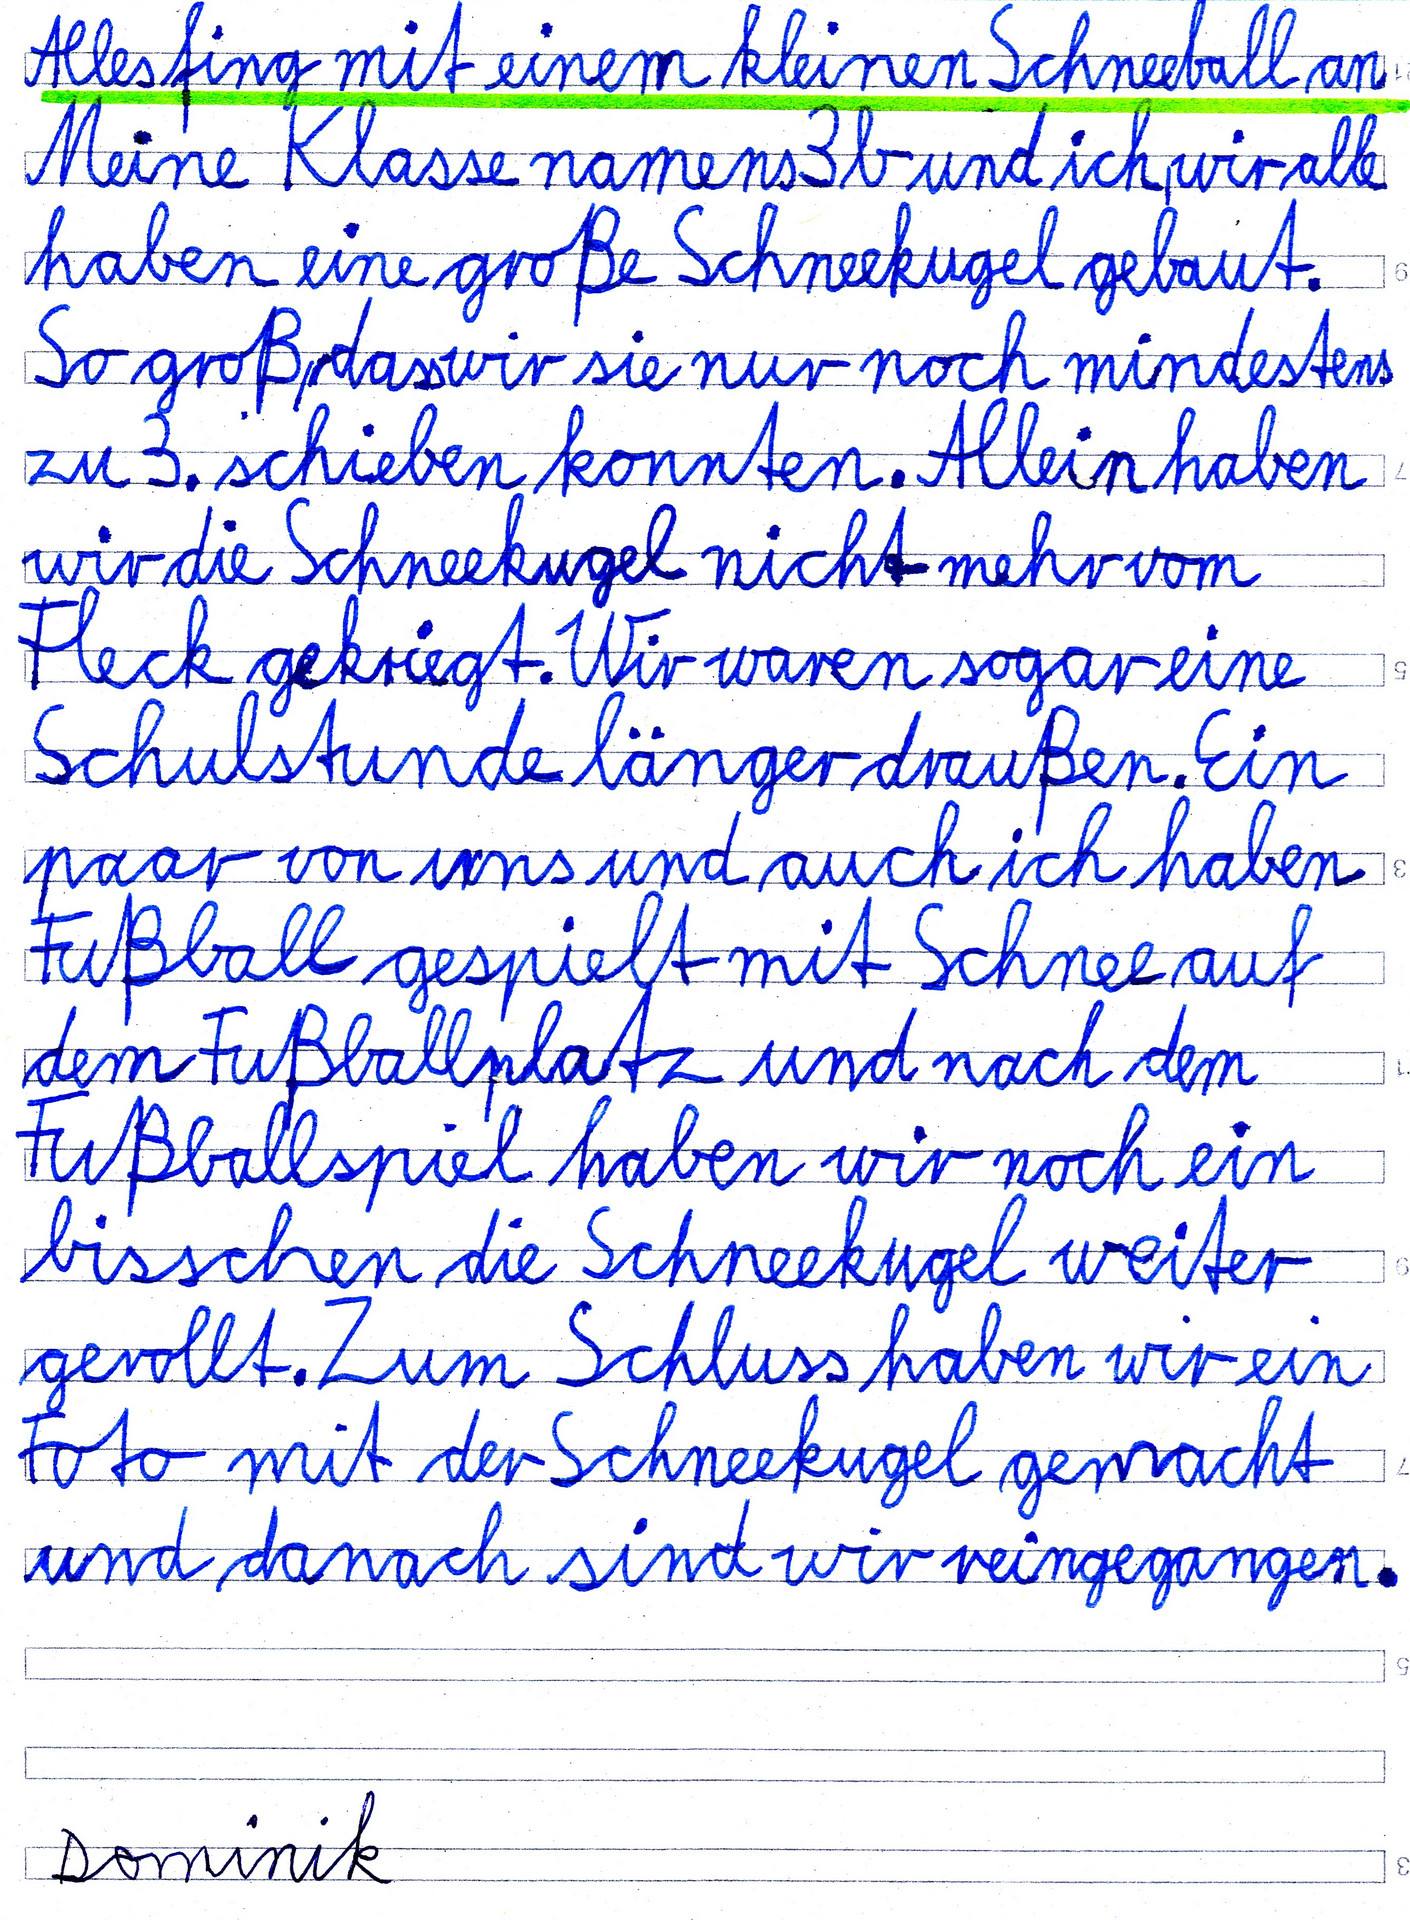 Alles fing mit einem kleinen Schneeball an.
Meine Klasse namens 3b und ich, wir alle
haben eine große Schneekugel gebaut.
So groß, dass wir sie nur noch mindestens
zu 3. schieben konnten. Allein haben
wir die Schneekugel nicht mehr vom
Fleck gekriegt. Wir waren sogar eine
Schulstunde länger draußen. Ein
paar von uns und auch ich haben
Fußball gespielt mit Schnee auf
dem Fußballplatz und nach dem
Fußballspiel haben wir noch ein
bisschen die Schneekugel weiter
gerollt. Zum Schluss haben wir ein
Foto mit der Schneekugel gemacht
und danach sind wir reingegangen.
Dominik